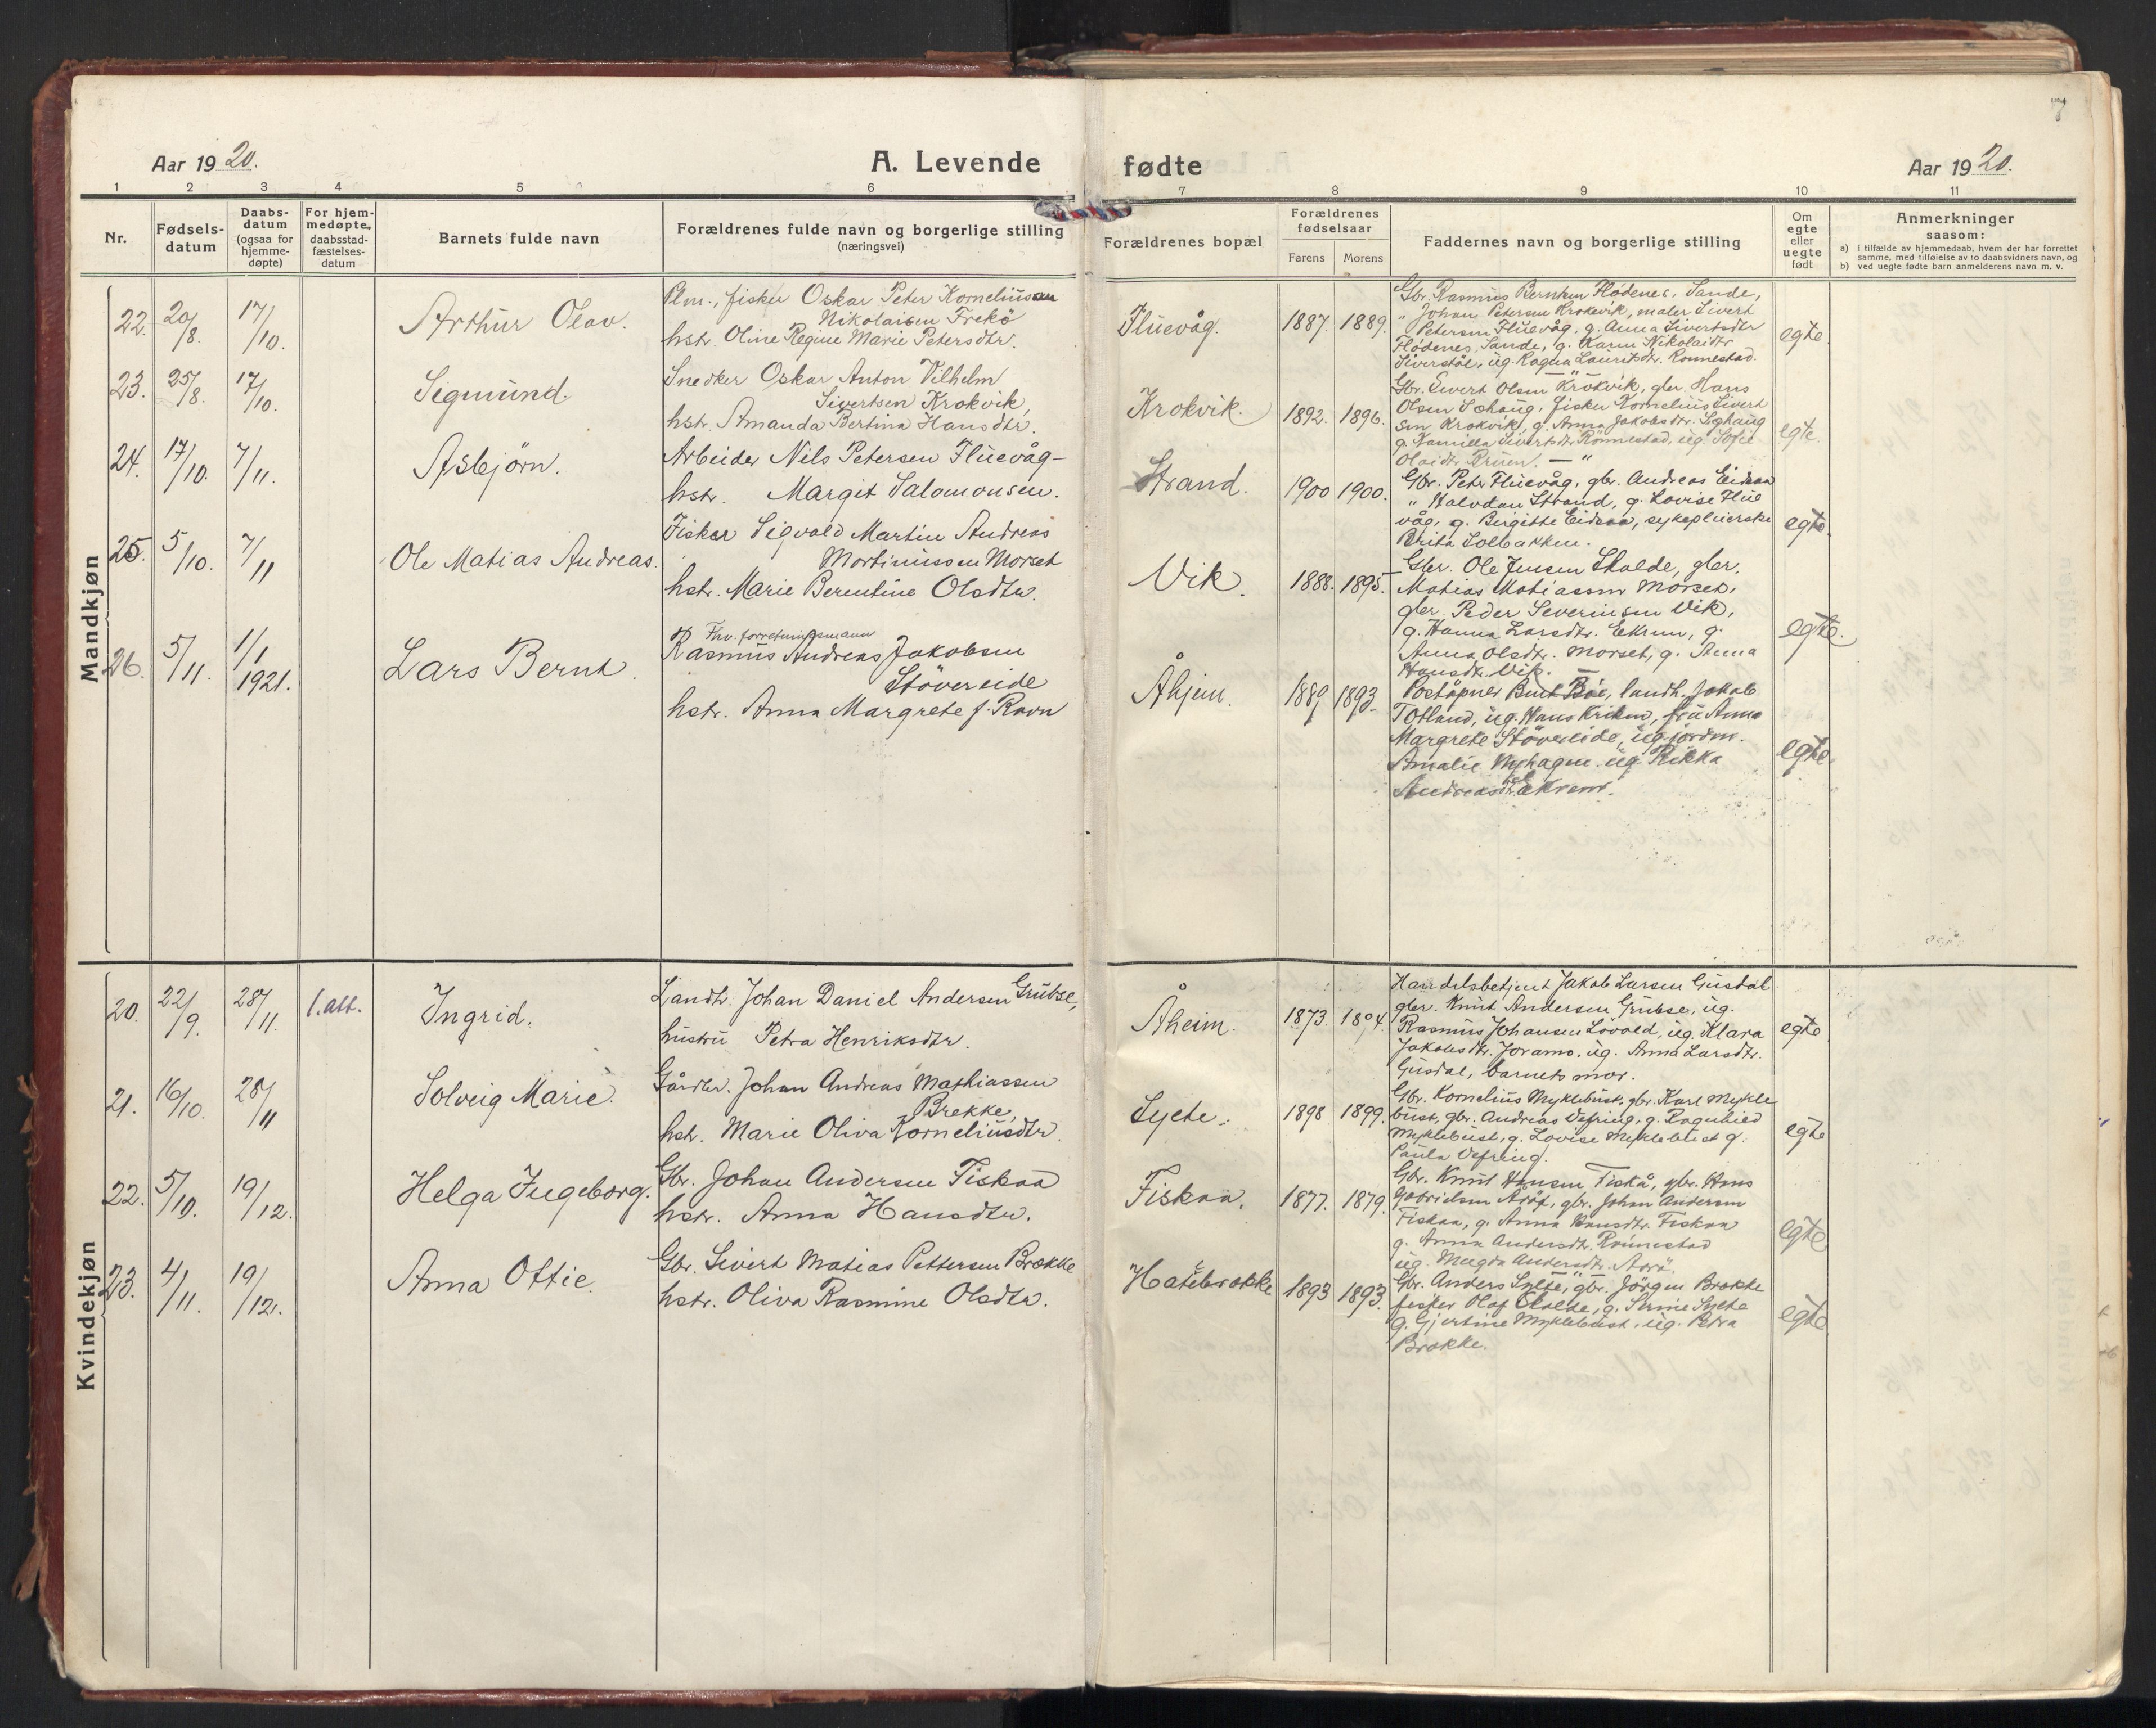 7
Aar 1920.
A. Levende
fødte
Aar 1920.
1 2 3 4 5 6 7 8 9 10 11
Nr.
Fødsels-
datum
Daabs-
datum
(ogsaa for
hjemme-
døpte)
For hjem-
medøpte.
daabsstad-
fæstelses-
datum
Barnets fulde navn
Forældrenes fulde navn og borgerlige stilling
(næringsvei)
Forældrenes bopæl
Forældrenes
fødselsaar
Farens Morens
Faddernes navn og borgerlige stilling
Om
egte
eller
uegte
født
Anmerkninger
saasom:
a) i tilfælde av hjemmedaab, hvem der har forrettet
samme, med tilføielse av to daabsvidners navn, og
b) ved uegte fødte barn anmelderens navn m. v.
Mandkjøn
22. 20/8. 17/10.
Arthur Olav.
fisker Oskar Peter Korneliussen
Nikolaisen Frekö
hstr. Oline Regine Marie Petersdtr.
Fluevåg. 1887. 1889.
Gbr. Rasmus Berntsen Flødenes, Sande,
" Johan Petersen Krokvik, maler Sivert
Petersen Fluevåg, g. Anna Sivertsdtr
Flødenes, Sande, g. Karen Nikolaidtr
ug. Ragna Lauritsdtr. Rønnestad.
egte
23. 25/8. 17/10.
Sigmund.
Snedker Oskar Anton Vilhelm
Sivertsen Krokvik,
hstr. Amanda Bertina Hansdtr.
Krokvik. 1892. 1896.
Gbr. Sivert Olsen Krokvik, gbr. Hans
Olsen fisker Kornelius Sivert
sen Krokvik, g. Anna Jakobsdtr.
g. Kamilla Sivertsdtr Rønnestad, ug. Sofie
Olaidtr. — "
egte.
24. 17/10. 7/11.
Asbjörn.
Arbeider Nils Petersen Fluevåg —
hstr. Margit Salomonsen.
Strand. 1900 1900.
Gbr. Peter Fluevåg, gbr. Andreas Eidsaa
" Halvdan Strand, g. Lovise Flue
våg, g. Birgitte Eidsaa, sykepleierske
Brita Solbakken.
egte.
25. 5/10. 7/11
Ole Matias Andreas.
Fisker Sigvald Martin Andreas
Mortinussen Morset
hstr. Marie Berentine Olsdtr.
Vik. 1888. 1895.
Gbr. Ole Jensen Skolde, gbr.
Matias Matiassen Morset,
gbr. Peder Severinsen Vik,
g. Hanna Larsdtr. Ekrem, g.
Anna Olsdtr. Morset, g. Anna
Hansdtr. Vik.
egte.
26. 5/11. 1/1 1921.
Lars Bernt
Fhv. forretningsmann
Rasmus Andreas Jakobsen
Stövereide
hstr. Anna Margrete f. Ravn
Åhjem. 1889 1893.
Poståpner Bernt Böe, landh. Jakob
Totland, ug. Hans Eriksen, frü Anna
Margrete Stövereide, ug. jordm.
Amalie Myhagen. ug. Rikka
Andreasdtr. Ekrem.
egte.
Kvindekjøn
20. 22/9. 28/11. 1. att.
Ingrid.
Landh. Johan Daniel Andersen Grubse,
hustru Petra Henriksdtr.
Åheim. 1873. 1894.
Handelsbetjent Jakob Larsen Gusdal
gbr. Knut Andersen Grubse, ug.
Rasmus Johansen Lövold, ug. Klara
Jakobsdtr. Joramo. ug. Anna Larsdtr.
Gusdal, barnets mor.
egte
21. 16/10. 28/11
Solveig Marie.
Gårdbr. Johan Andreas Mathiassen
Brekke,
hstr. Marie Oliva Korneliusdtr.
Sylte. 1898 1899.
Gbr. Kornelius Myklebust, gbr. Karl Mykle
bust, gbr. Andreas Vefring, g. Ragnhild
Myklebust, g. Lovise Myklebust g.
Paula Vefring.
egte
22. 5/10. 19/12.
Helga Ingeborg.
Gbr. Johan Andersen Fiskaa
hstr. Anna Hansdtr.
Fiskaa. 1877. 1879.
Gbr. Knut Hansen Fiskå, gbr. Hans
Gabrielsen gbr. Johan Andersen
Fiskaa, g. Anna Hansdtr. Fiskaa
g. Anna Andersdtr. Rönnestad
ug. Magda Andersdtr.
egte
23. 4/11. 19/12.
Anna Ottie.
Gbr. Sivert Matias Pettersen Brekke
hstr. Oliva Rasmine Olsdtr.
Hatebrekke 1893 1893.
Gbr. Anders Sylte, gbr. Jörgen Brekke
fisker Olaf Skolde, g. Serine Sylte
g. Gjertine Myklebust, ug. Petra
Brekke.
egte